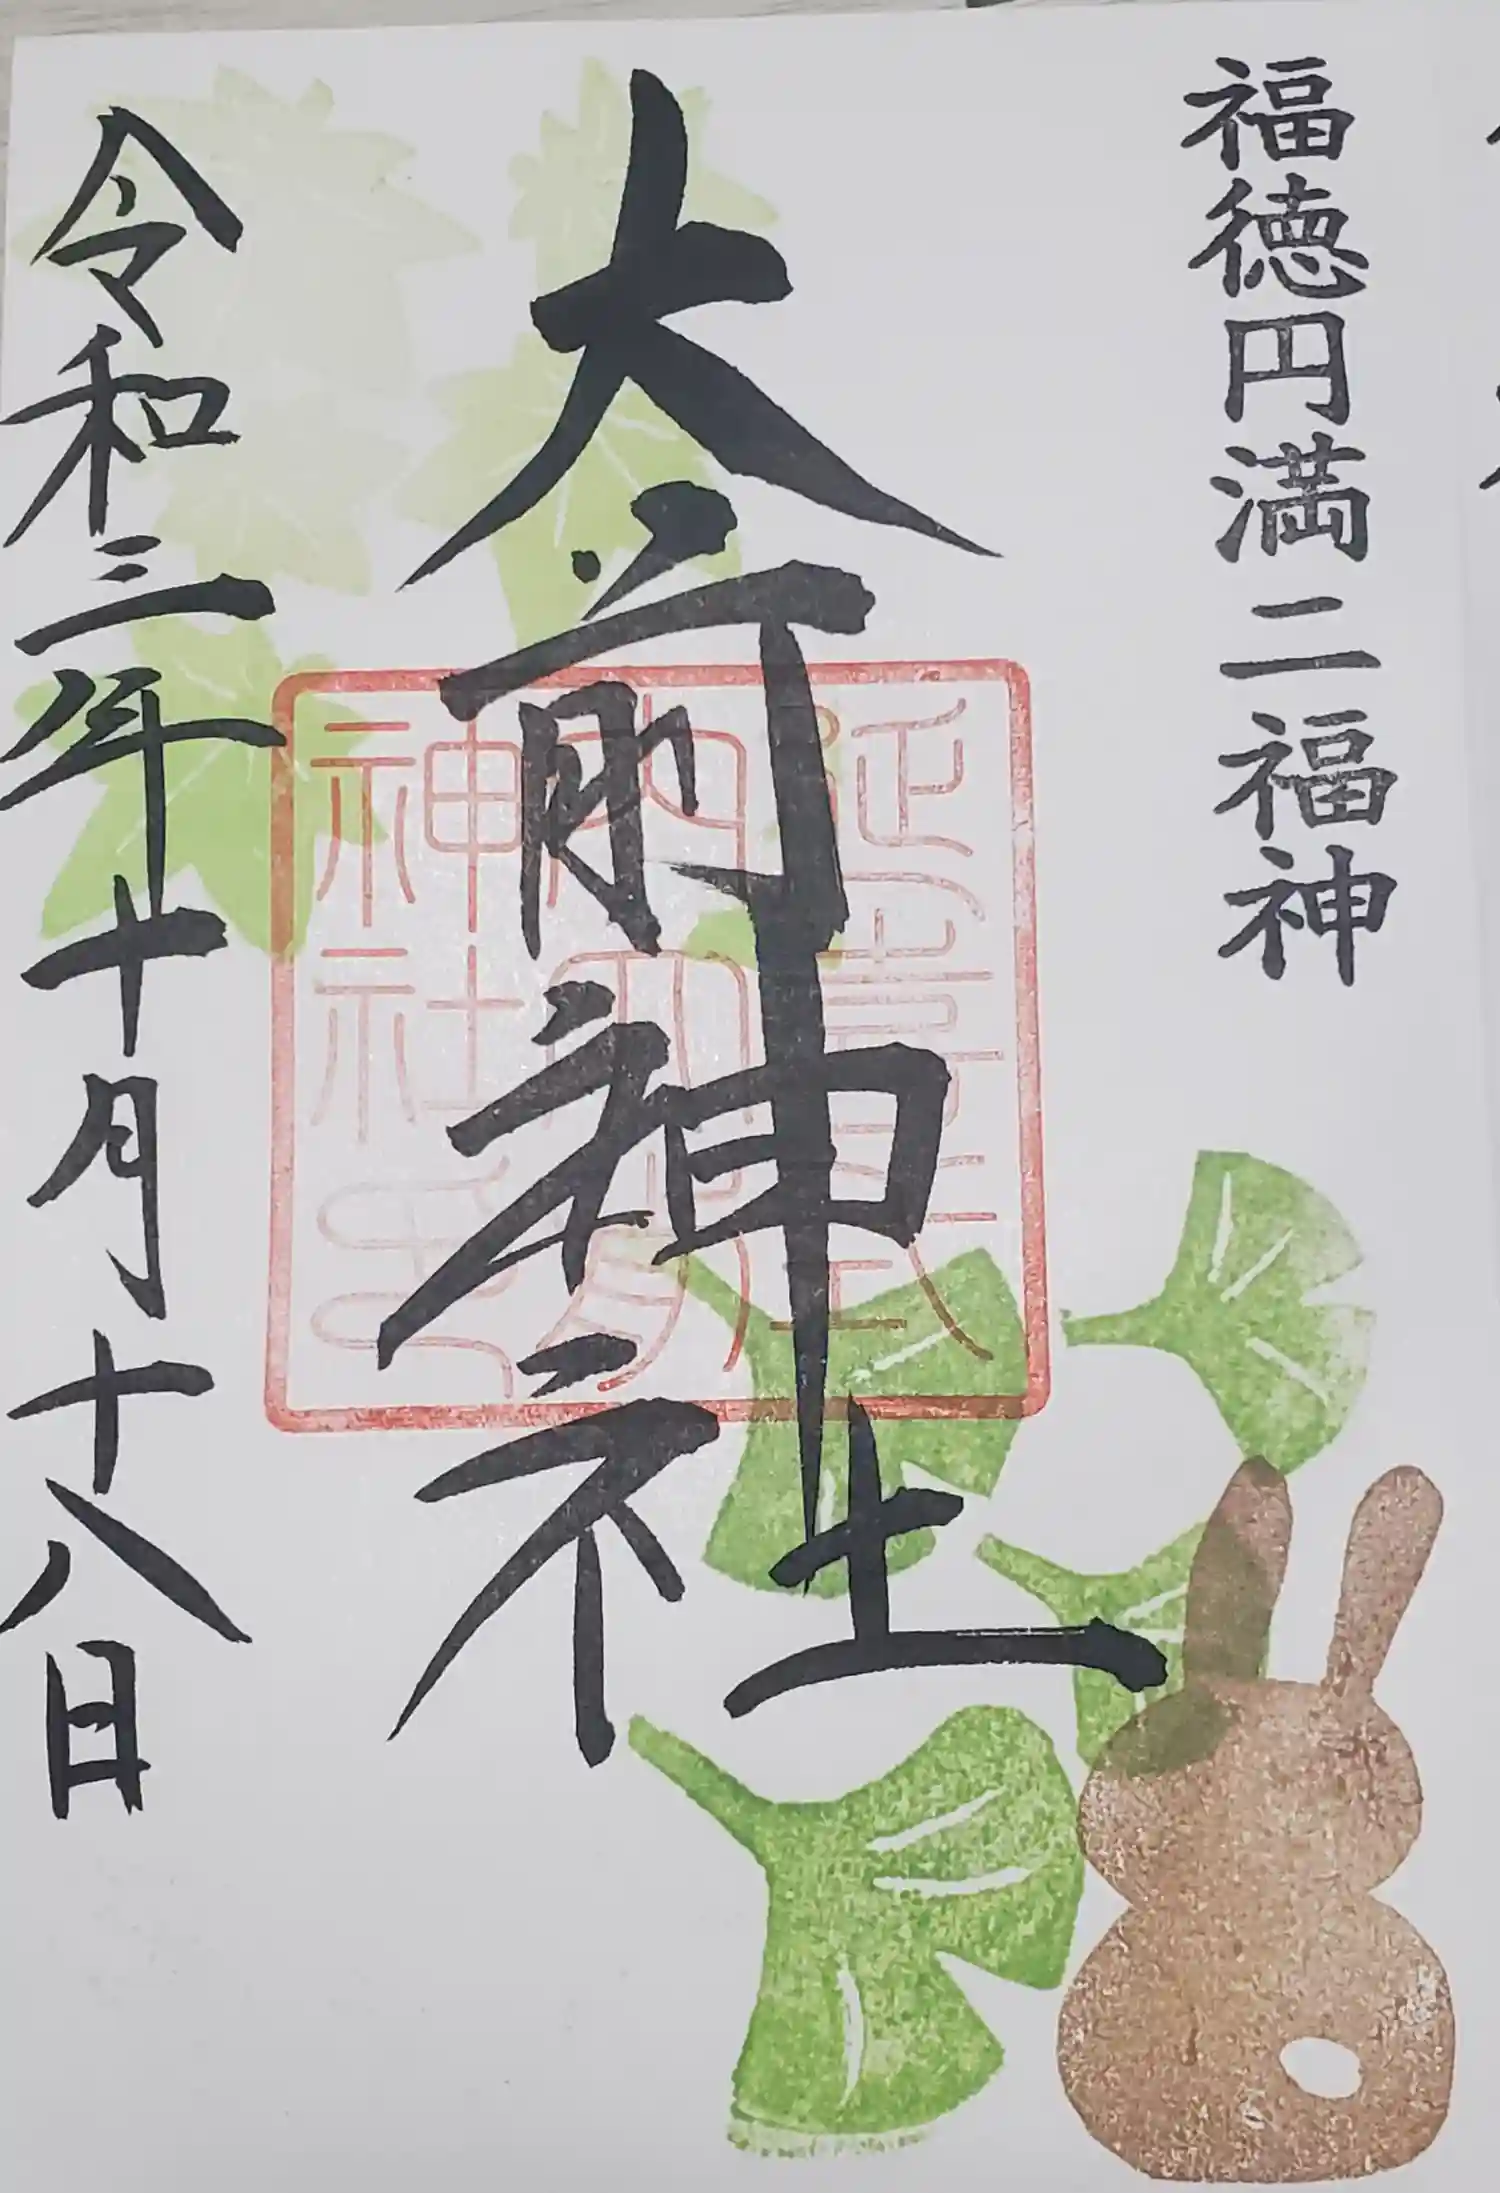 福徳円満二福神
大前神社
延喜式内大前神社
令和三年十月十八日